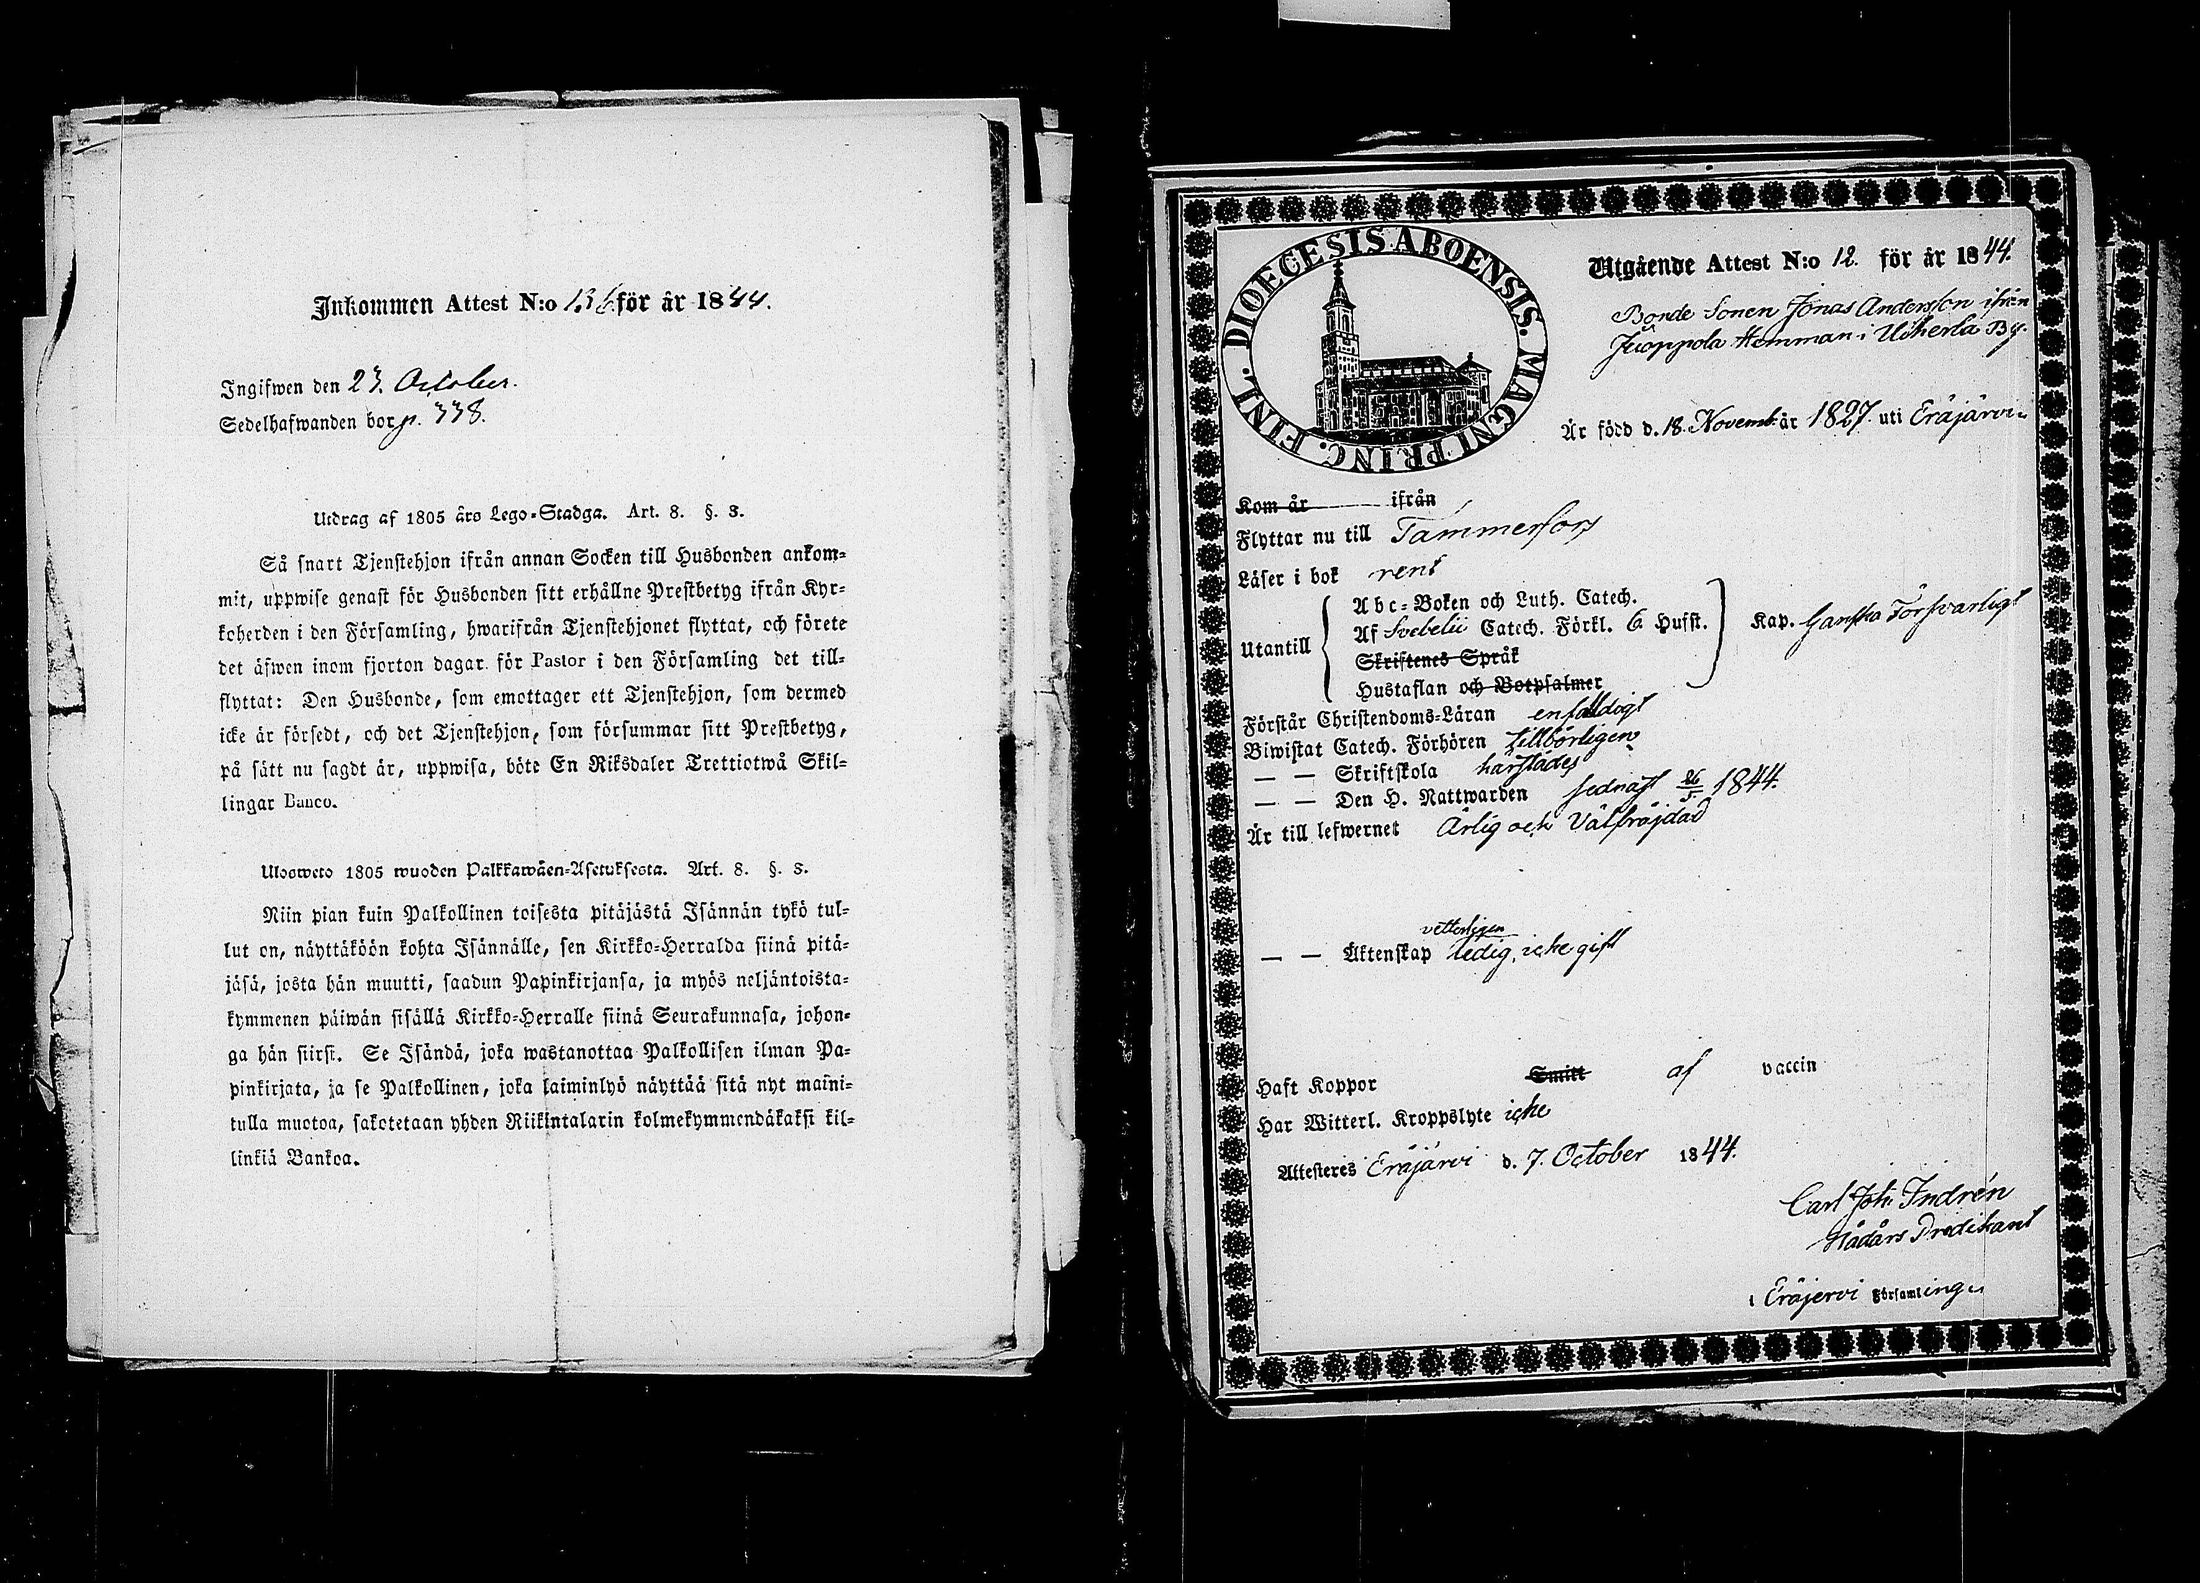 Inkommen Attest N:o 136 för år 1844.
Ingifwen den 23. October.
Sedelhafwanden bor p. 338.
Utdrag af 1805 års Lego-Stadga. Art. 8. §. 3.
Så snart Tjenstehjon ifrån annan Socken till Husbonden ankom-
mit, uppwise genast för Husbonden sitt erhållne Prestbetyg ifrån Kyr-
koherden i den Församling, hwarifrån Tjenstehjonet flyttat, och förete
det äfwen inom fjorton dagar för Pastor i den Församling det till-
flyttat: Den Husbonde, som emottager ett Tjenstehjon, som dermed
icke är försedt, och det Tjenstehjon, som försummar sitt Prestbetyg,
på sätt nu sagdt är, uppwisa, böte En Riksdaler Trettiotwå Skil-
lingar Banco.
Ulosweto 1805 wuoden Palkkawäen-Asetuksesta. Art. 8. §. 3.
Niin pian kuin Palkollinen toisesta pitäjästä Isännän tykö tul-
lut on, näyttäköön kohta Isännälle, sen Kirkko-Herralda siinä pitä-
jäsä, josta hän muutti, saadun Papinkirjansa, ja myös neljäntoista-
kymmenen päiwän sisällä Kirkko-Herralle siinä Seurakunnasa, johon-
ga hän siirsi. Se Isändä, joka wastanottaa Palkollisen ilman Pa-
pinkirjata, ja se Palkollinen, joka laiminlyö näyttää sitä nyt maini-
tulla muotoa, sakotetaan yhden Riikintalarin kolmekymmendäkaksi kil-
linkiä Bankoa.
DIOECESIS ABOENSIS. MAGNI PRINC. FINL.
Utgående Attest N:o 12. för år 1844.
Bonde Sonen Jonas Andersson ifrån
Juoppola Hemman i Uiherla By.
Är född d. 18. Novemb. år 1827. uti Eräjärvi
Kom år ifrån
Flyttar nu till Tammerfors
Läser i bok rent
Utantill
Abc-Boken och Luth. Catech.
Af Svebelii Catech. Förkl. 6 Hufst.
Skriftenes Språk
Hustaflan och Botpsalmer
Kap. Ganska Försvarligt
Förstår Christendoms-Läran enfaldigt
Biwistat Catech. Förhören tillbörligen
— — Skriftskola härstädes
— — Den H. Nattwarden sednast 26/5 1844.
Är till lefwernet Ärlig och Välfräjdad
vetterligen
— — Äktenskap ledig, icke gift
Haft Koppor Smitt af vaccin
Har Witterl. Kroppslyte icke
Attesteres Eräjärvi d. 7. October 1844.
Carl Joh. Indrén
Nådårs Predikant
i Eräjervi Församling